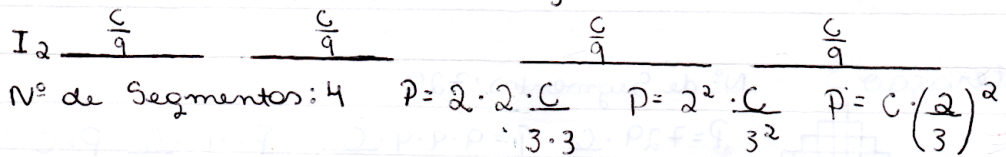 I2 C/9 C/9 C/9 C/9
Nº de Segmentos: 4 P= 2·2·C/3·3 P= 2²·C/3² P= C·(2/3)²